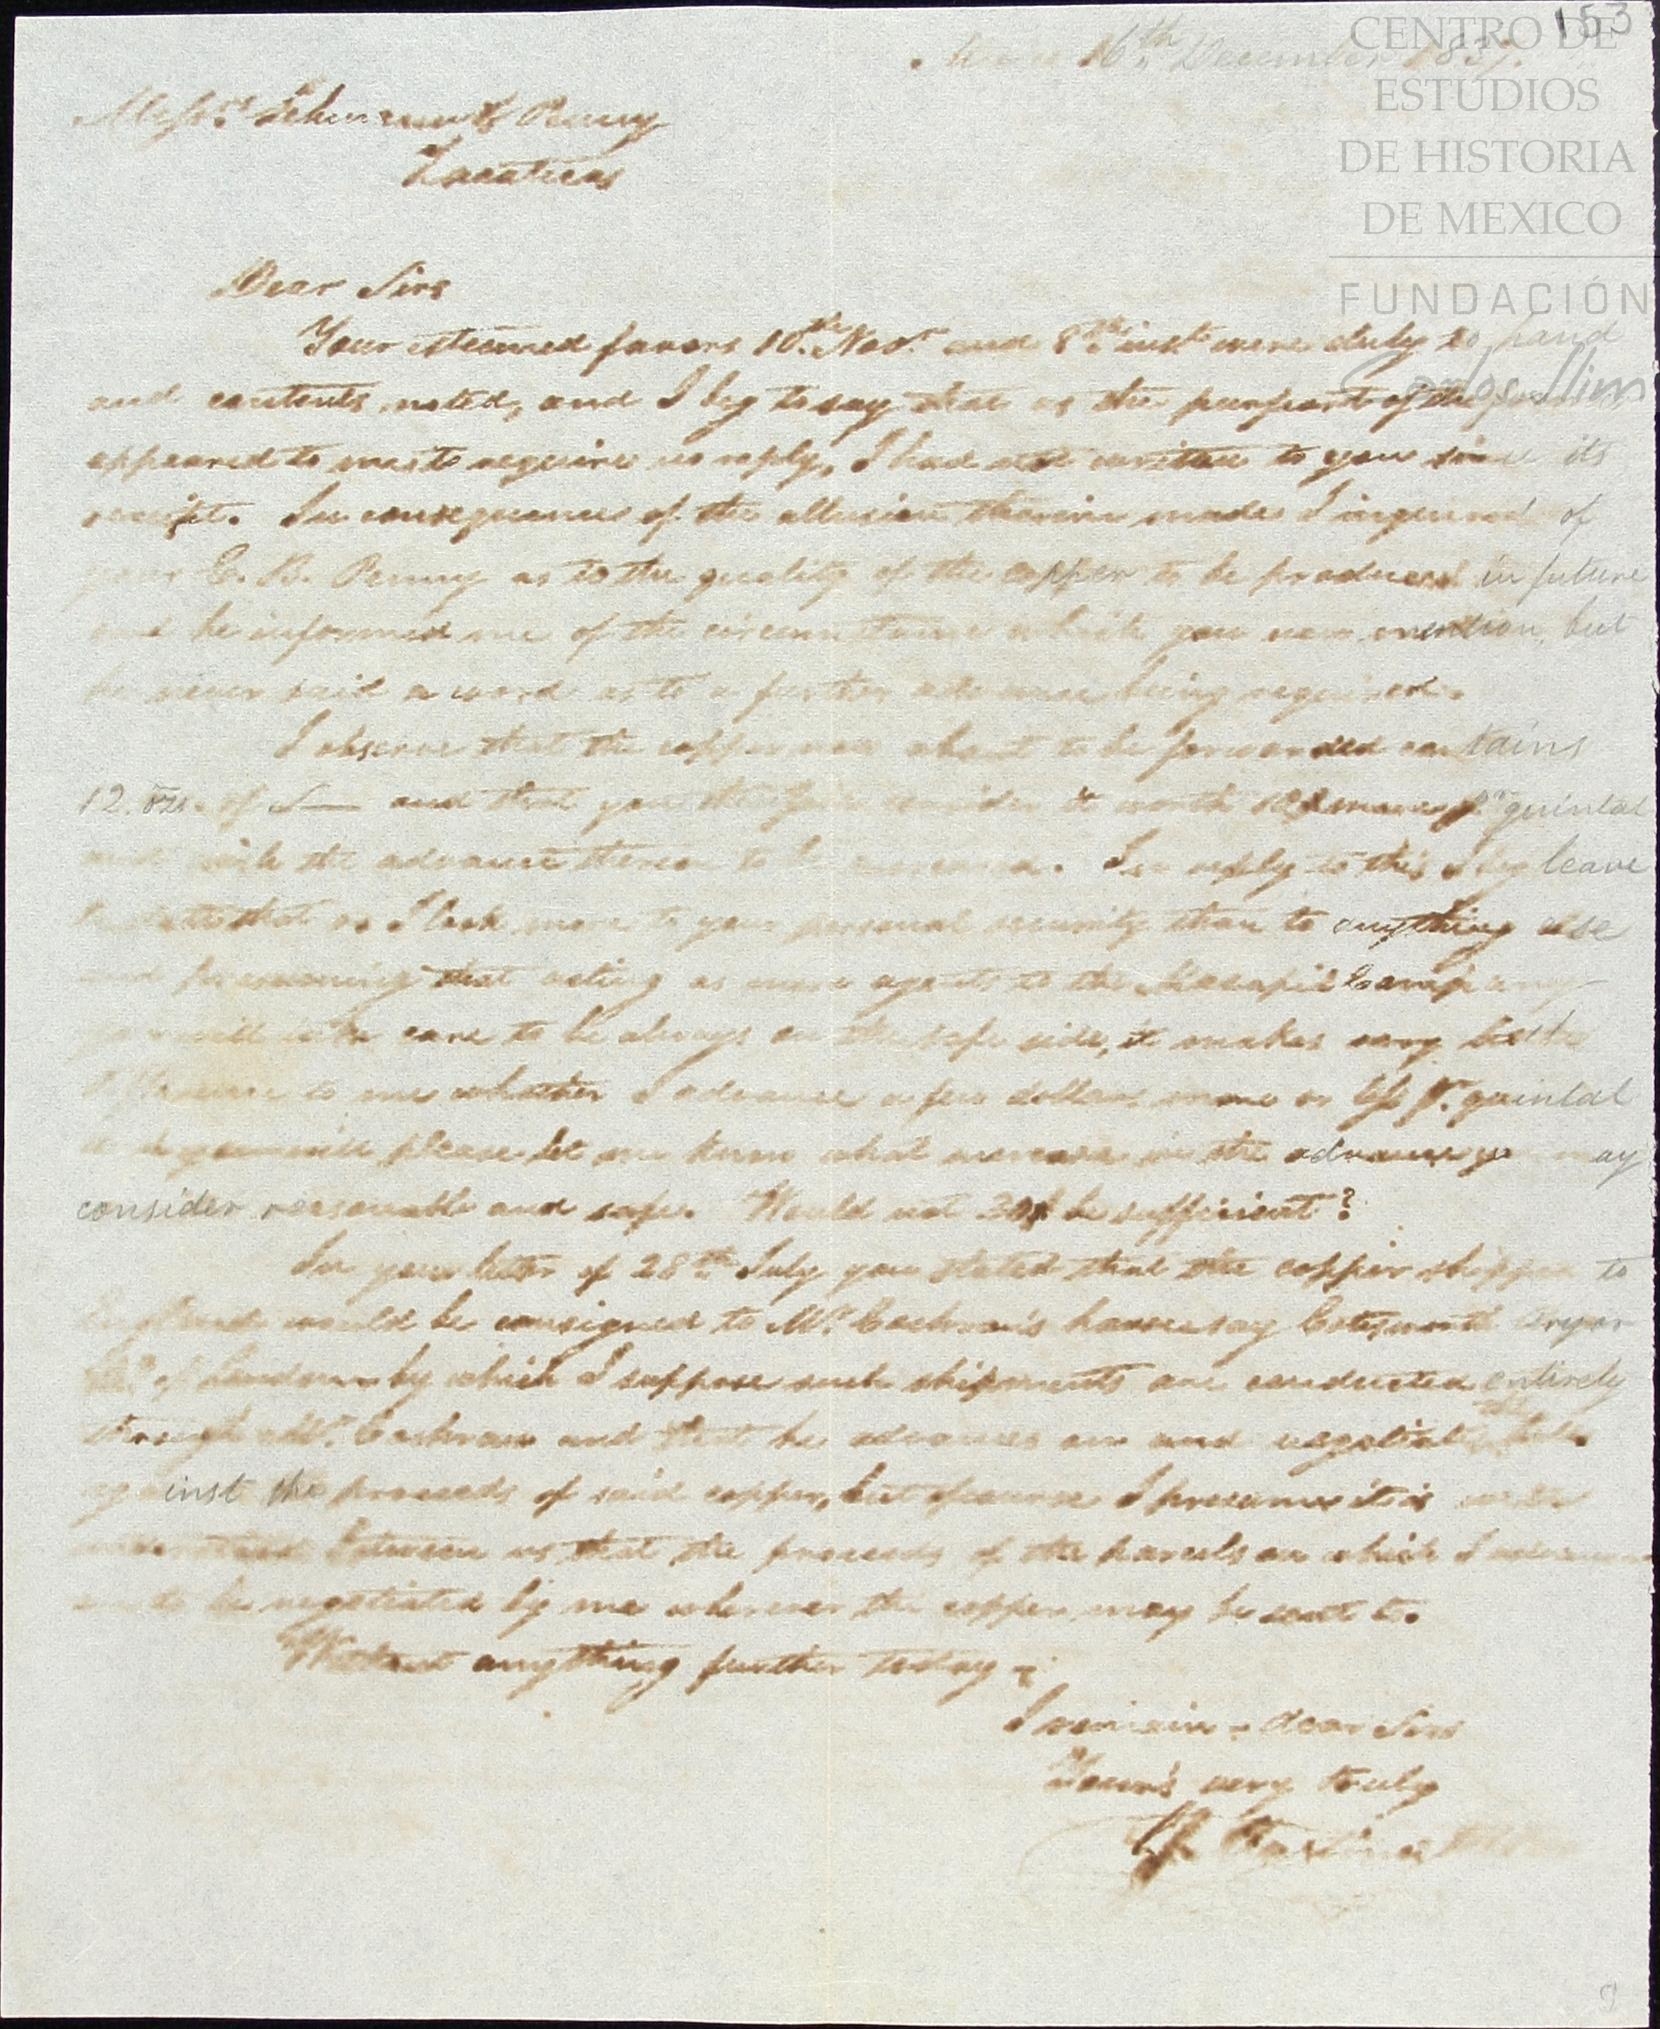 153
CENTRO DE
ESTUDIOS
DE HISTORIA
DE MEXICO
FUNDACIÓN
Carlos Slim
16th December
Messrs. & Penny
Zacatecas
Dear Sirs
Your esteemed favors 10th Novr. and 8th inst. were duly to hand
and contents noted, and I beg to say that as the purport of the
appeared to me to require no reply, I had not written to you since its
receipt. In consequence of the allusion therein made I inquired of
your C. B. Penny as to the quality of the copper to be produced in future
and he informed me of the circumstance which you now mention, but
he never said a word as to a further advance being required.
I observe that the copper now about to be forwarded contains
12. ozs. of S— and that you consider it worth 10$ more pr quintal
and wish the advance thereon to be increased. In reply to this I beg leave
to state that as I look more to your personal security than to anything else
and presuming that acting as mere agents to the Mazapil Company
you will take care to be always on the safe side, it makes very little
difference to me whether I advance a few dollars more or less pr. quintal
and you will please let me know what increase in the advance you may
consider reasonable and safe. Would not 30$ be sufficient?
In your letter of 28th July you stated that the copper shipped to
England would be consigned to Mr. Cochran's house say Cotesworth Pryor
of London by which I suppose such shipments are conducted entirely
through Mr. Cochran and that he advances on and negotiates the bills
against the proceeds of said copper, but of course I presume it is
understood between us that the proceeds of the parcels on which I advance
are to be negotiated by me wherever the copper may be sent to.
Without anything further today,
I remain, dear Sirs
Your's very truly